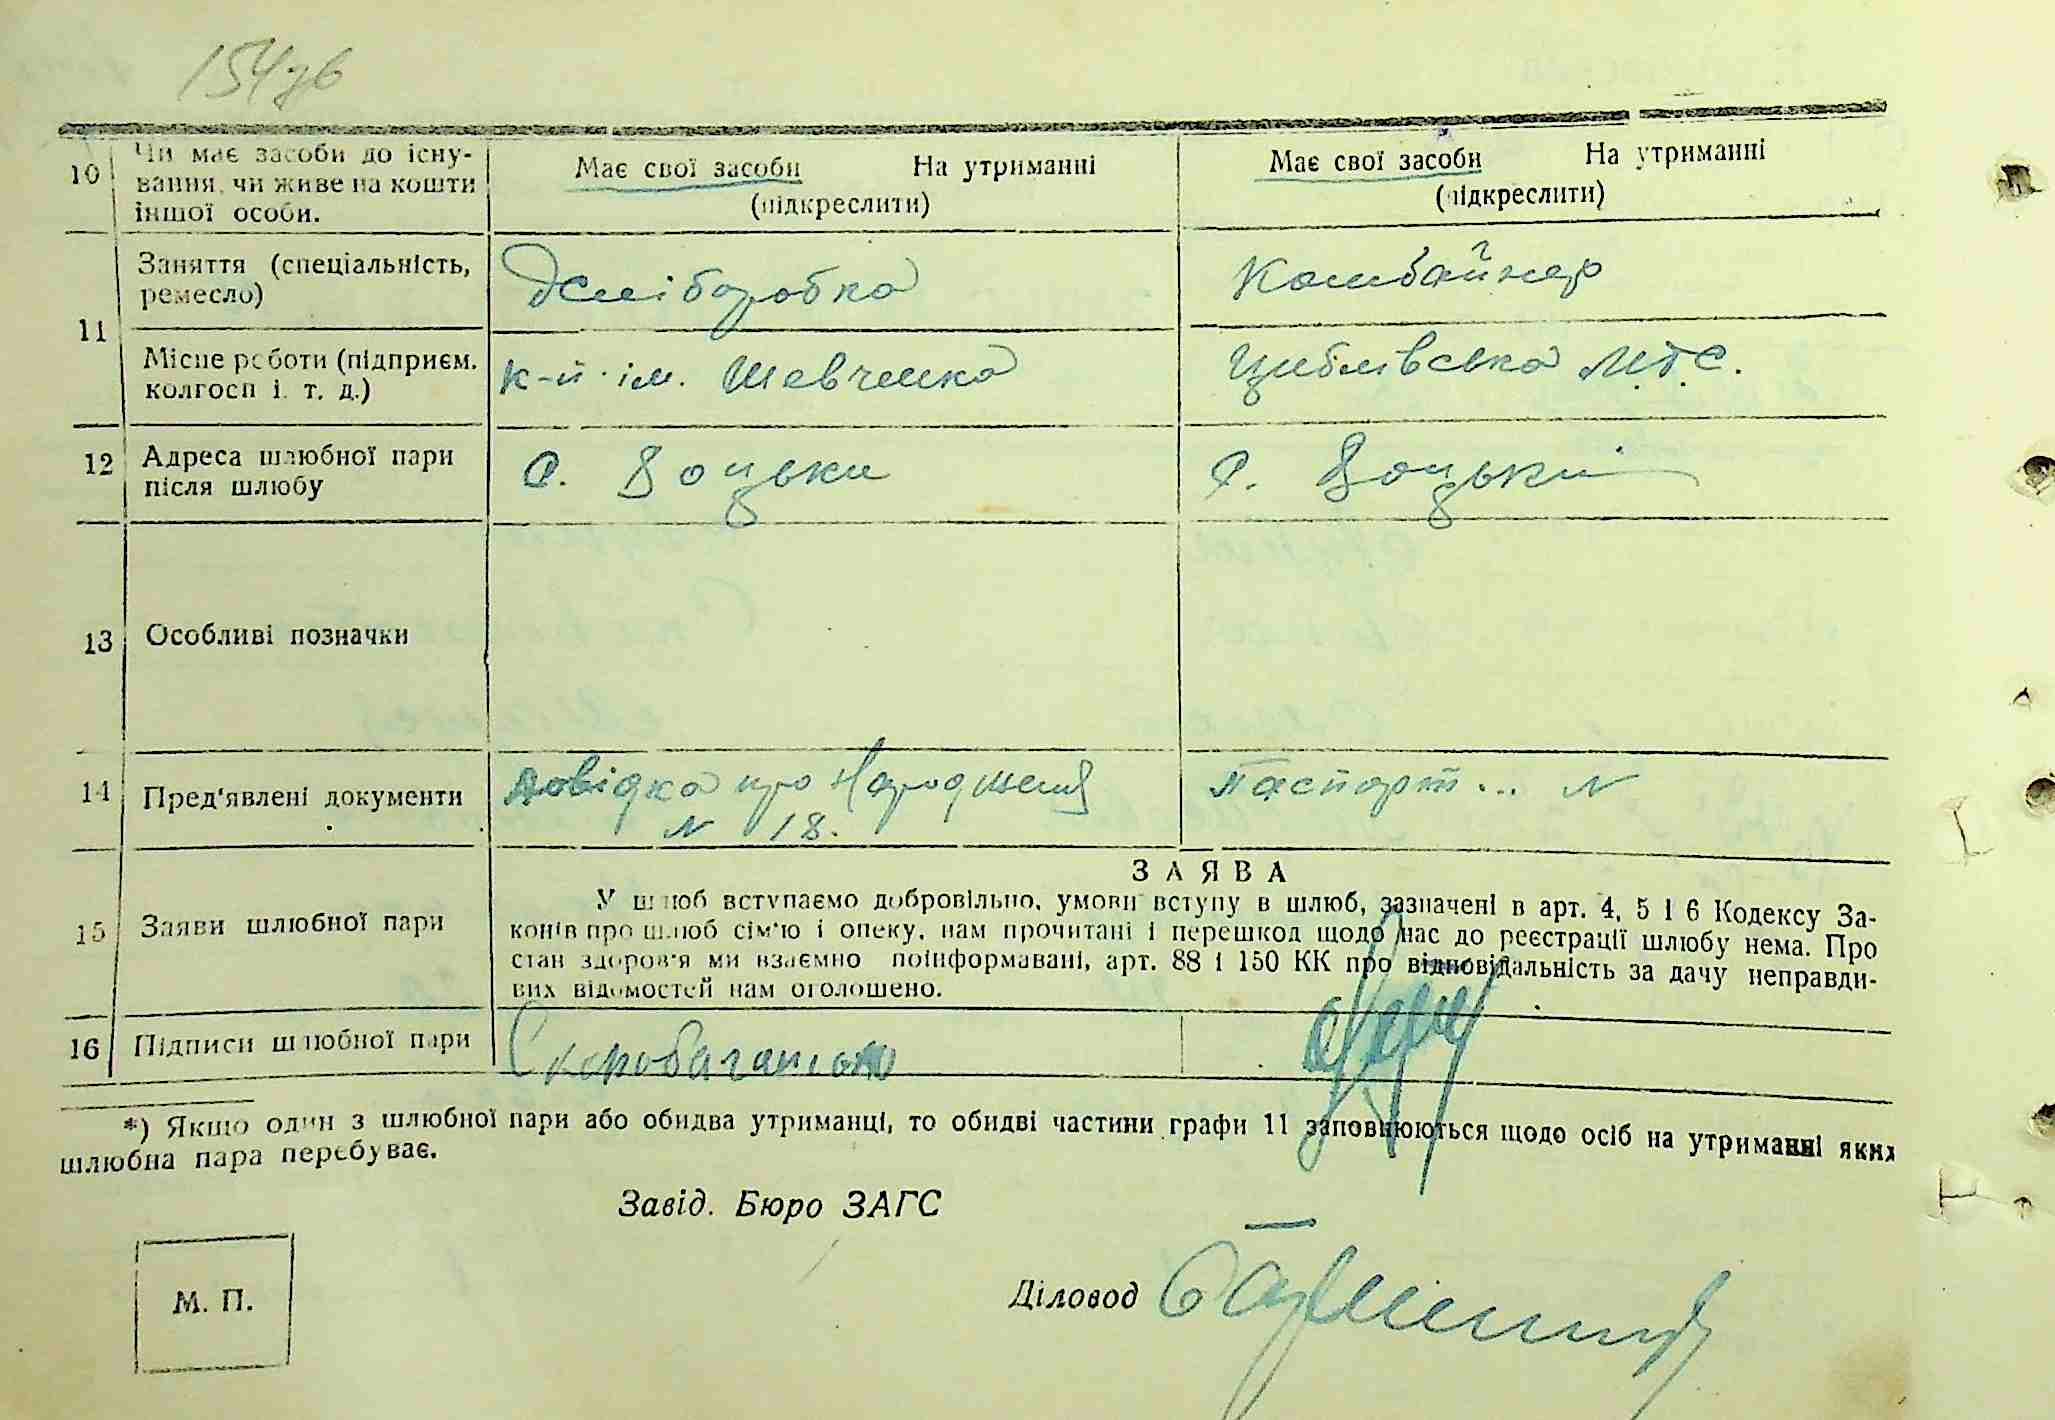 154зв
10 Чи має засоби до існу-
вання, чи живе на кошти
іншої особи.
Має свої засоби На утриманні
(підкреслити)
Має свої засоби На утриманні
(підкреслити)
11 Заняття (спеціальність,
ремесло)
Комбайнер
Місце роботи (підприєм.
колгосп і. т. д.)
к-п ім. Шевченка
Циблівська М.Т.С.
12 Адреса шлюбної пари
після шлюбу
с. Воцьки
с. Воцьки
13 Особливі позначки
14 Пред'явлені документи
Довідка про народження
N 18.
Паспорт... N
15 Заяви шлюбної пари
ЗАЯВА
У шлюб вступаємо добровільно, умови вступу в шлюб, зазначені в арт. 4, 5 і 6 Кодексу За-
конів про шлюб сім'ю і опеку, нам прочитані і перешкод щодо нас до реєстрації шлюбу нема. Про
стан здоров'я ми взаємно поінформавані, арт. 88 і 150 КК про відповідальність за дачу неправди-
вих відомостей нам оголошено.
16 Підписи шлюбної пари
*) Якщо один з шлюбної пари або обидва утриманці, то обидві частини графи 11 заповнюються щодо осіб на утриманні яких
шлюбна пара перебуває.
Завід. Бюро ЗАГС
М. П.
Діловод